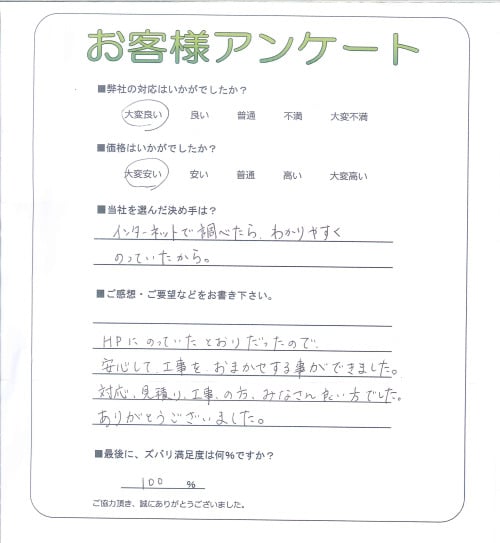 お客様アンケート
■弊社の対応はいかがでしたか？
大変良い 良い 普通 不満 大変不満
■価格はいかがでしたか？
大変安い 安い 普通 高い 大変高い
■当社を選んだ決め手は？
インターネットで調べたら、わかりやすく
のっていたから。
■ご感想・ご要望などをお書き下さい。
HPにのっていたとおりだったので、
安心して、工事を、おまかせする事ができました。
対応、見積り、工事、の方、みなさん良い方でした。
ありがとうございました。
■最後に、ズバリ満足度は何％ですか？
100 %
ご協力頂き、誠にありがとうございました。